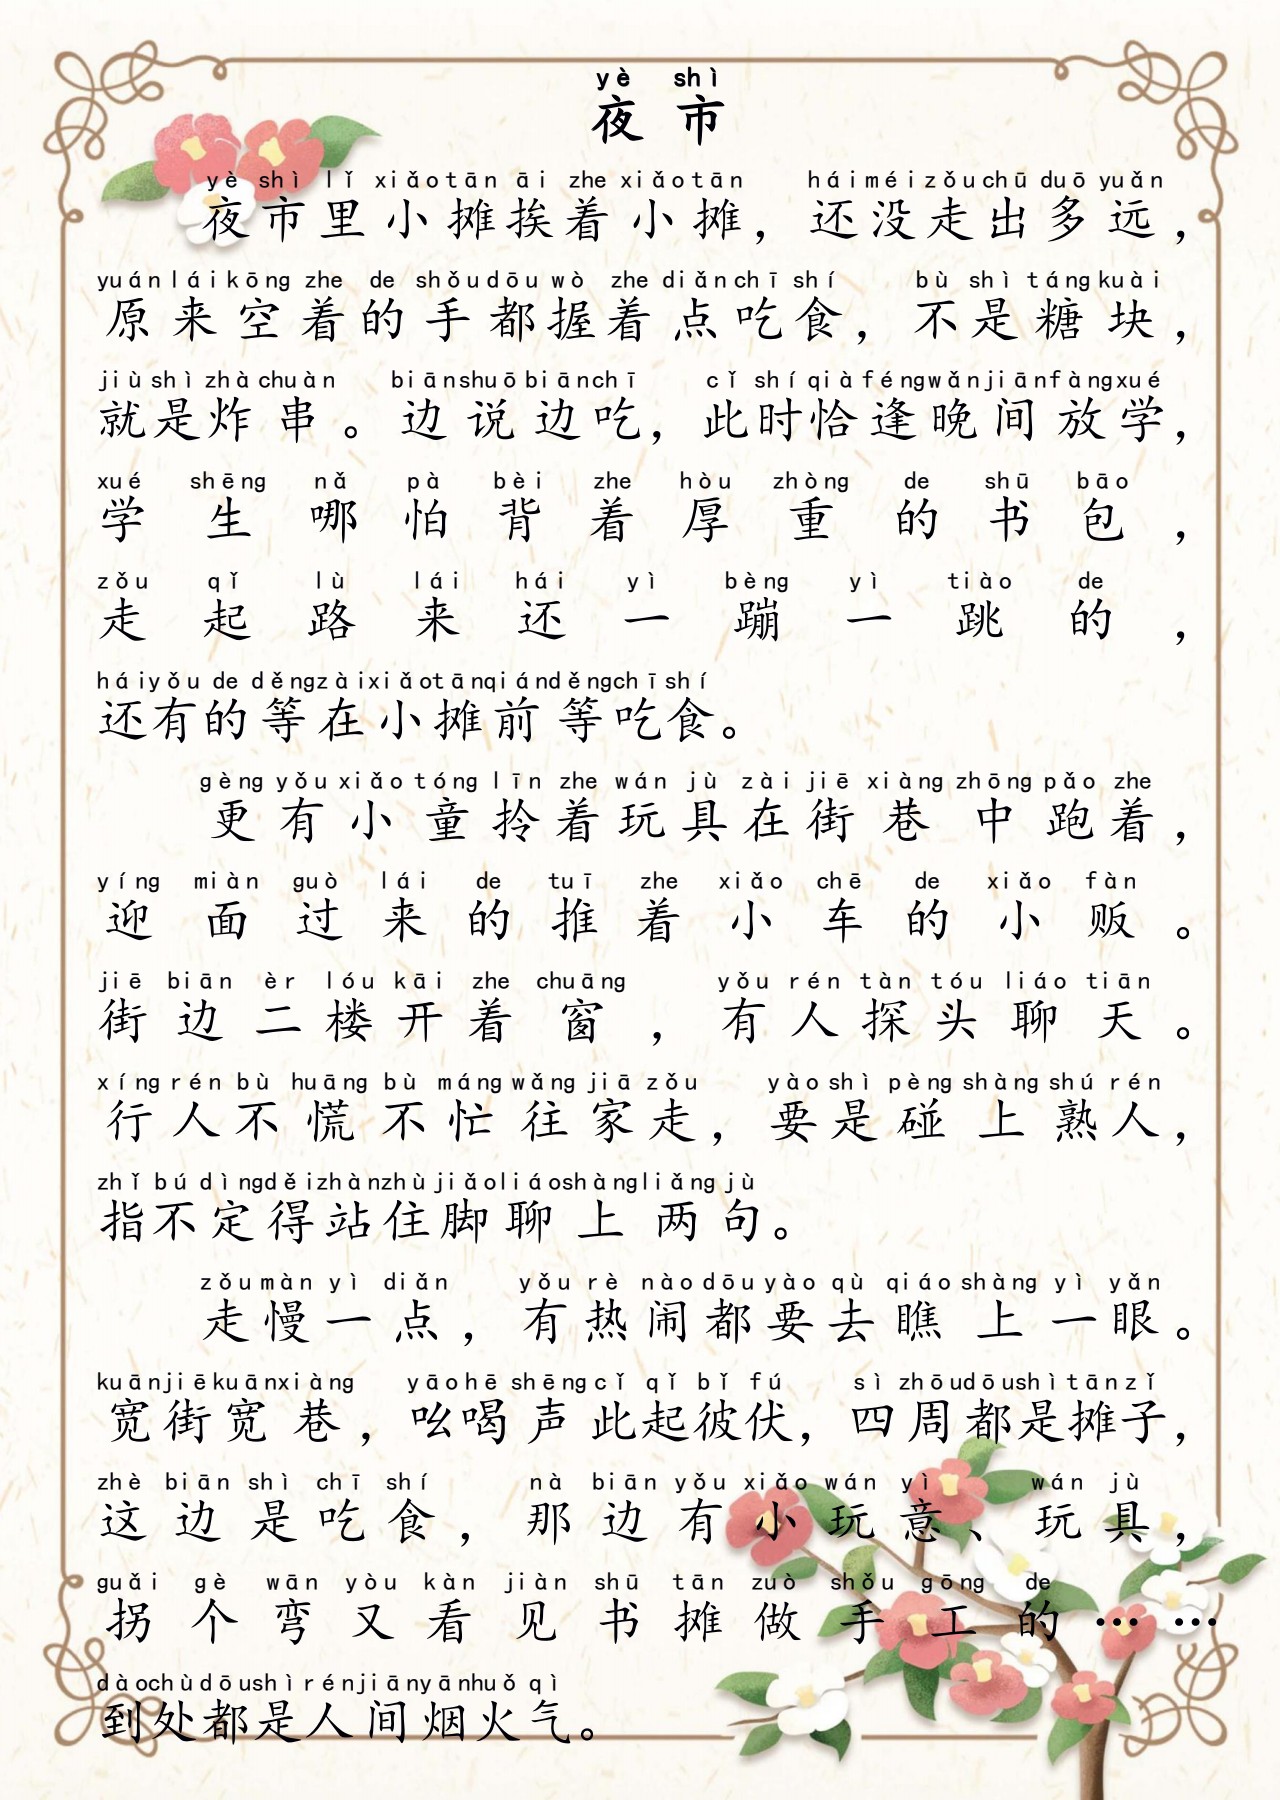 yè shì
夜市
yè shì lǐ xiǎo tān āi zhe xiǎo tān hái méi zǒu chū duō yuǎn
夜市里小摊挨着小摊，还没走出多远，
yuán lái kōng zhe de shǒu dōu wò zhe diǎn chī shí bù shì táng kuài
原来空着的手都握着点吃食，不是糖块，
jiù shì zhà chuàn biān shuō biān chī cǐ shí qià féng wǎn jiān fàng xué
就是炸串。边说边吃，此时恰逢晚间放学，
xué shēng nǎ pà bèi zhe hòu zhòng de shū bāo
学生哪怕背着厚重的书包，
zǒu qǐ lù lái hái yì bèng yì tiào de
走起路来还一蹦一跳的，
hái yǒu de děng zài xiǎo tān qián děng chī shí
还有的等在小摊前等吃食。
gèng yǒu xiǎo tóng līn zhe wán jù zài jiē xiàng zhōng pǎo zhe
更有小童拎着玩具在街巷中跑着，
yíng miàn guò lái de tuī zhe xiǎo chē de xiǎo fàn
迎面过来的推着小车的小贩。
jiē biān èr lóu kāi zhe chuāng yǒu rén tàn tóu liáo tiān
街边二楼开着窗，有人探头聊天。
xíng rén bù huāng bù máng wǎng jiā zǒu yào shì pèng shàng shú rén
行人不慌不忙往家走，要是碰上熟人，
zhǐ bú dìng děi zhàn zhù jiǎo liáo shàng liǎng jù
指不定得站住脚聊上两句。
zǒu màn yì diǎn yǒu rè nào dōu yào qù qiáo shàng yì yǎn
走慢一点，有热闹都要去瞧上一眼。
kuān jiē kuān xiàng yāo hē shēng cǐ qǐ bǐ fú sì zhōu dōu shì tān zǐ
宽街宽巷，吆喝声此起彼伏，四周都是摊子，
zhè biān shì chī shí nà biān yǒu xiǎo wán yì wán jù
这边是吃食，那边有小玩意、玩具，
guǎi gè wān yòu kàn jiàn shū tān zuò shǒu gōng de
拐个弯又看见书摊做手工的……
dào chù dōu shì rén jiān yān huǒ qì
到处都是人间烟火气。